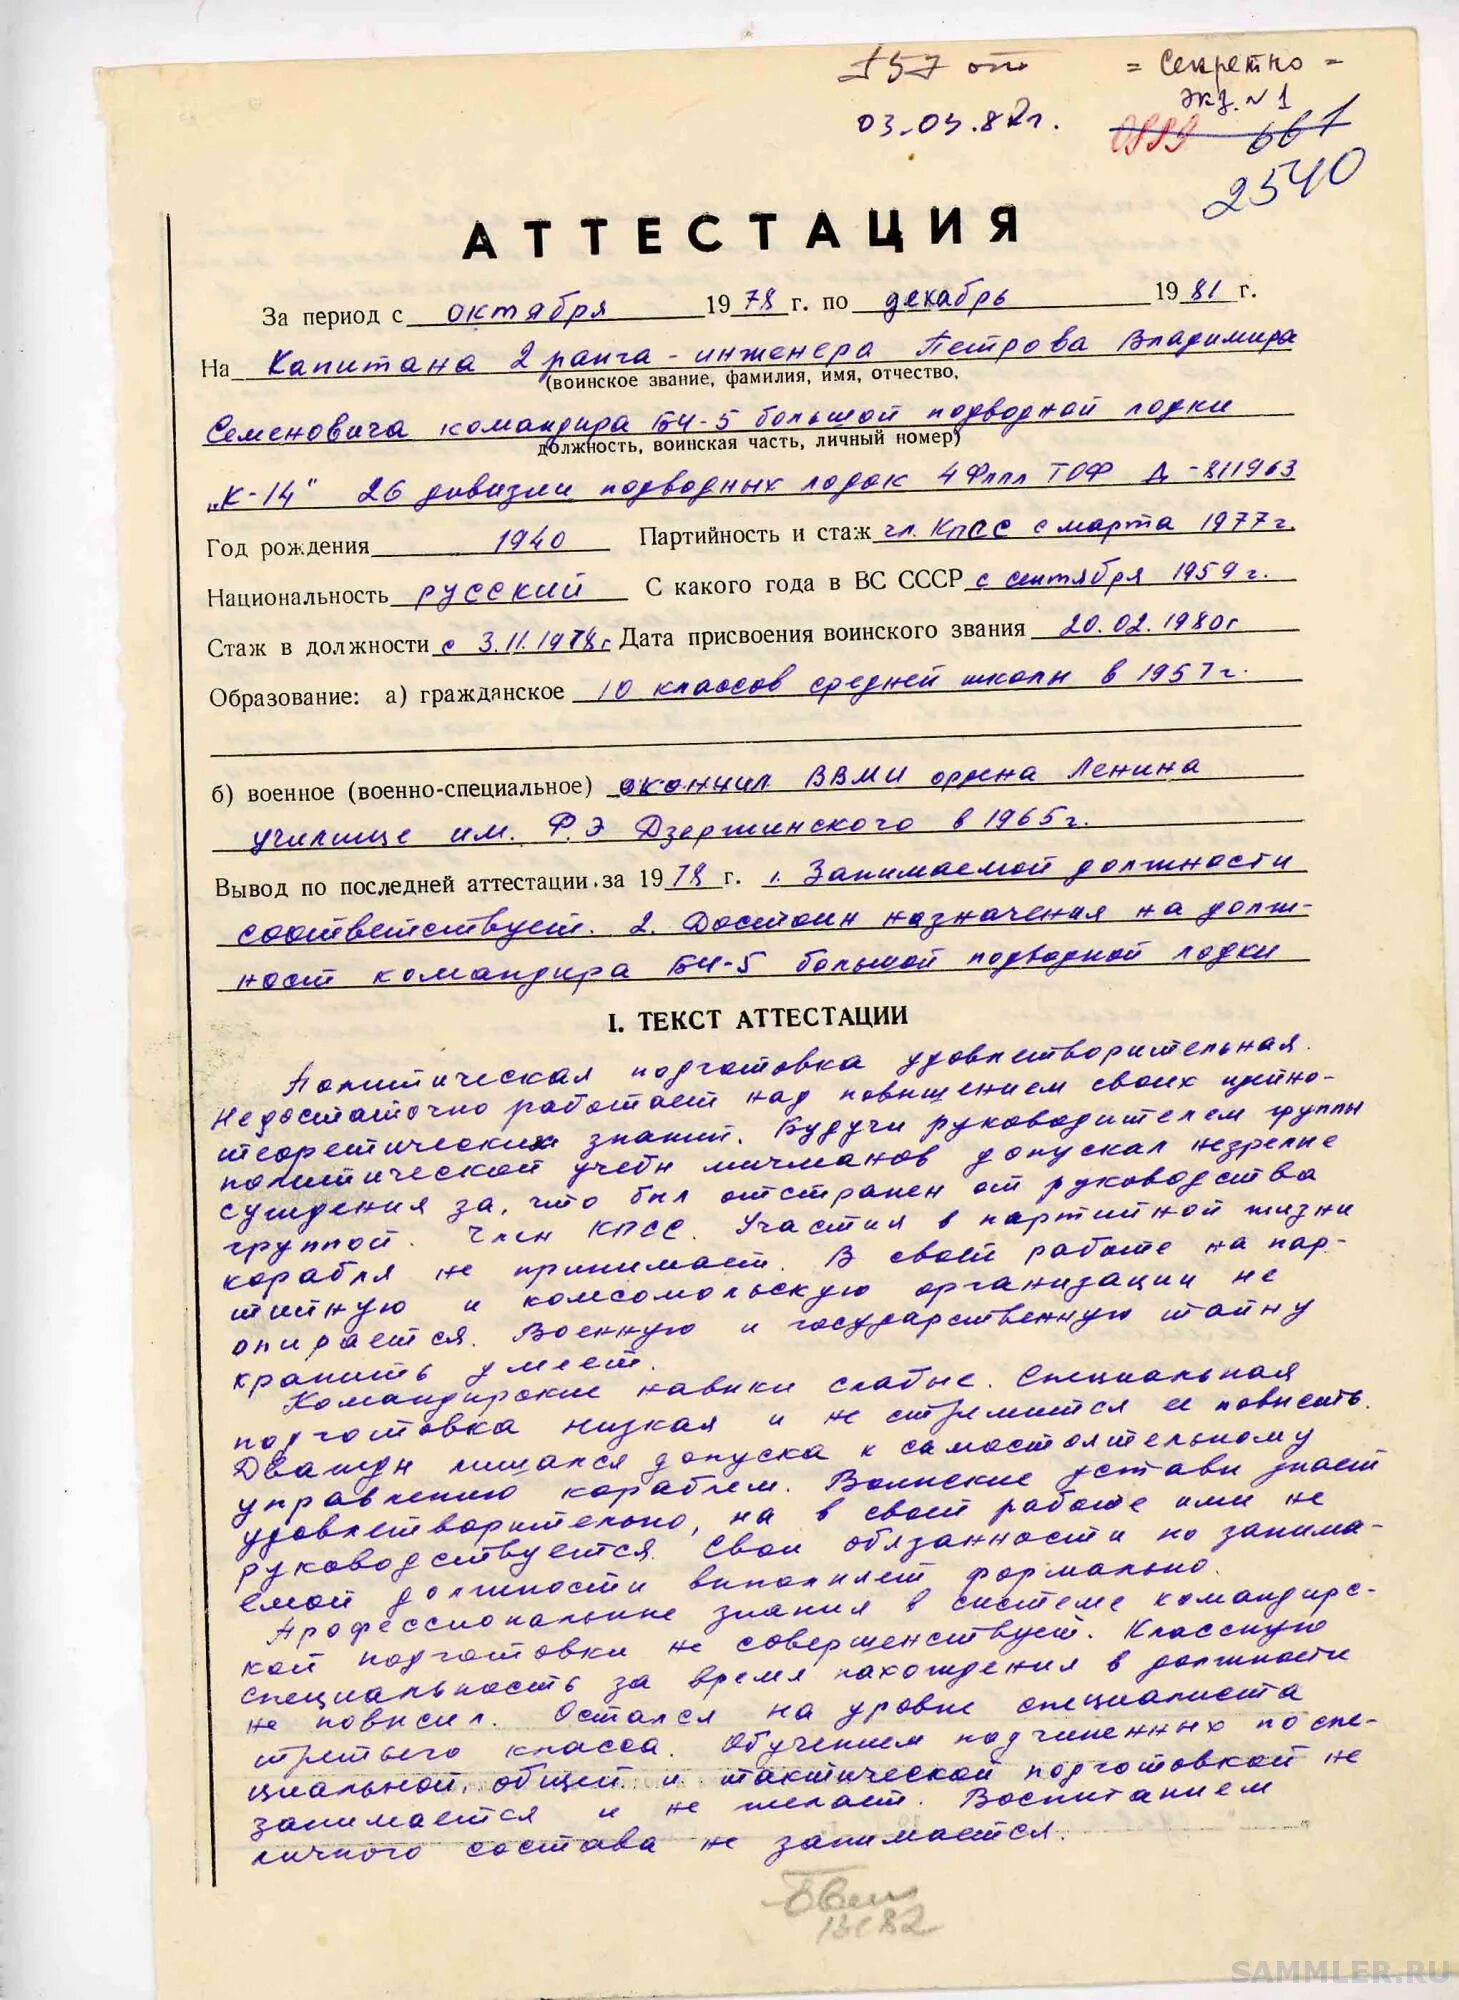 157 от = Секретно =
экз. № 1
03.03.82г. 0999 661
2540
АТТЕСТАЦИЯ
За период с октября 1978 г. по декабрь 1981 г.
На Капитана 2 ранга - инженера Петрова Владимира
(воинское звание, фамилия, имя, отчество,
Семеновича командира БЧ-5 большой подводной лодки
должность, воинская часть, личный номер)
„К-14" 26 дивизии подводных лодок 4 Флпл ТОФ Д-811963
Год рождения 1940 Партийность и стаж чл. КПСС с марта 1977г.
Национальность русский С какого года в ВС СССР с сентября 1959г.
Стаж в должности с 3.11.1978г Дата присвоения воинского звания 20.02.1980г
Образование: а) гражданское 10 классов средней школы в 1957г.
б) военное (военно-специальное) окончил ВВМИ ордена Ленина
училище им. Ф.Э Дзержинского в 1965г.
Вывод по последней аттестации за 1978 г. 1. Занимаемой должности
соответствует. 2. Достоин назначения на долж-
ност командира БЧ-5 большой подводной лодки
I. ТЕКСТ АТТЕСТАЦИИ
Политическая подготовка удовлетворительная.
Недостаточно работает над повышением своих идейно-
теоретических знаний. Будучи руководителем группы
политической учебы мичманов допускал незрелые
суждения за, что был отстранен от руководства
группой. Член КПСС. Участия в партийной жизни
корабля не принимает. В своей работе на пар-
тийную и комсомольскую организации не
опирается. Военную и государственную тайну
хранить умеет.
Командирские навыки слабые. Специальная
подготовка низкая и не стремится её повысить.
Дважды лишался допуска к самостоятельному
управлению кораблем. Воинские уставы знает
удовлетворительно, но в своей работе ими не
руководствуется. Свои обязанности по занима-
емой должности выполняет формально.
Профессиональные знания в системе командирс-
кой подготовки не совершенствует. Классную
специальность за время нахождения в должности
не повысил. Остался на уровне специалиста
третьего класса. Обучением подчиненных по спе-
циальной, общей и тактической подготовкой не
занимается и не желает. Воспитанием
личного состава не занимается.
SAMMLER.RU